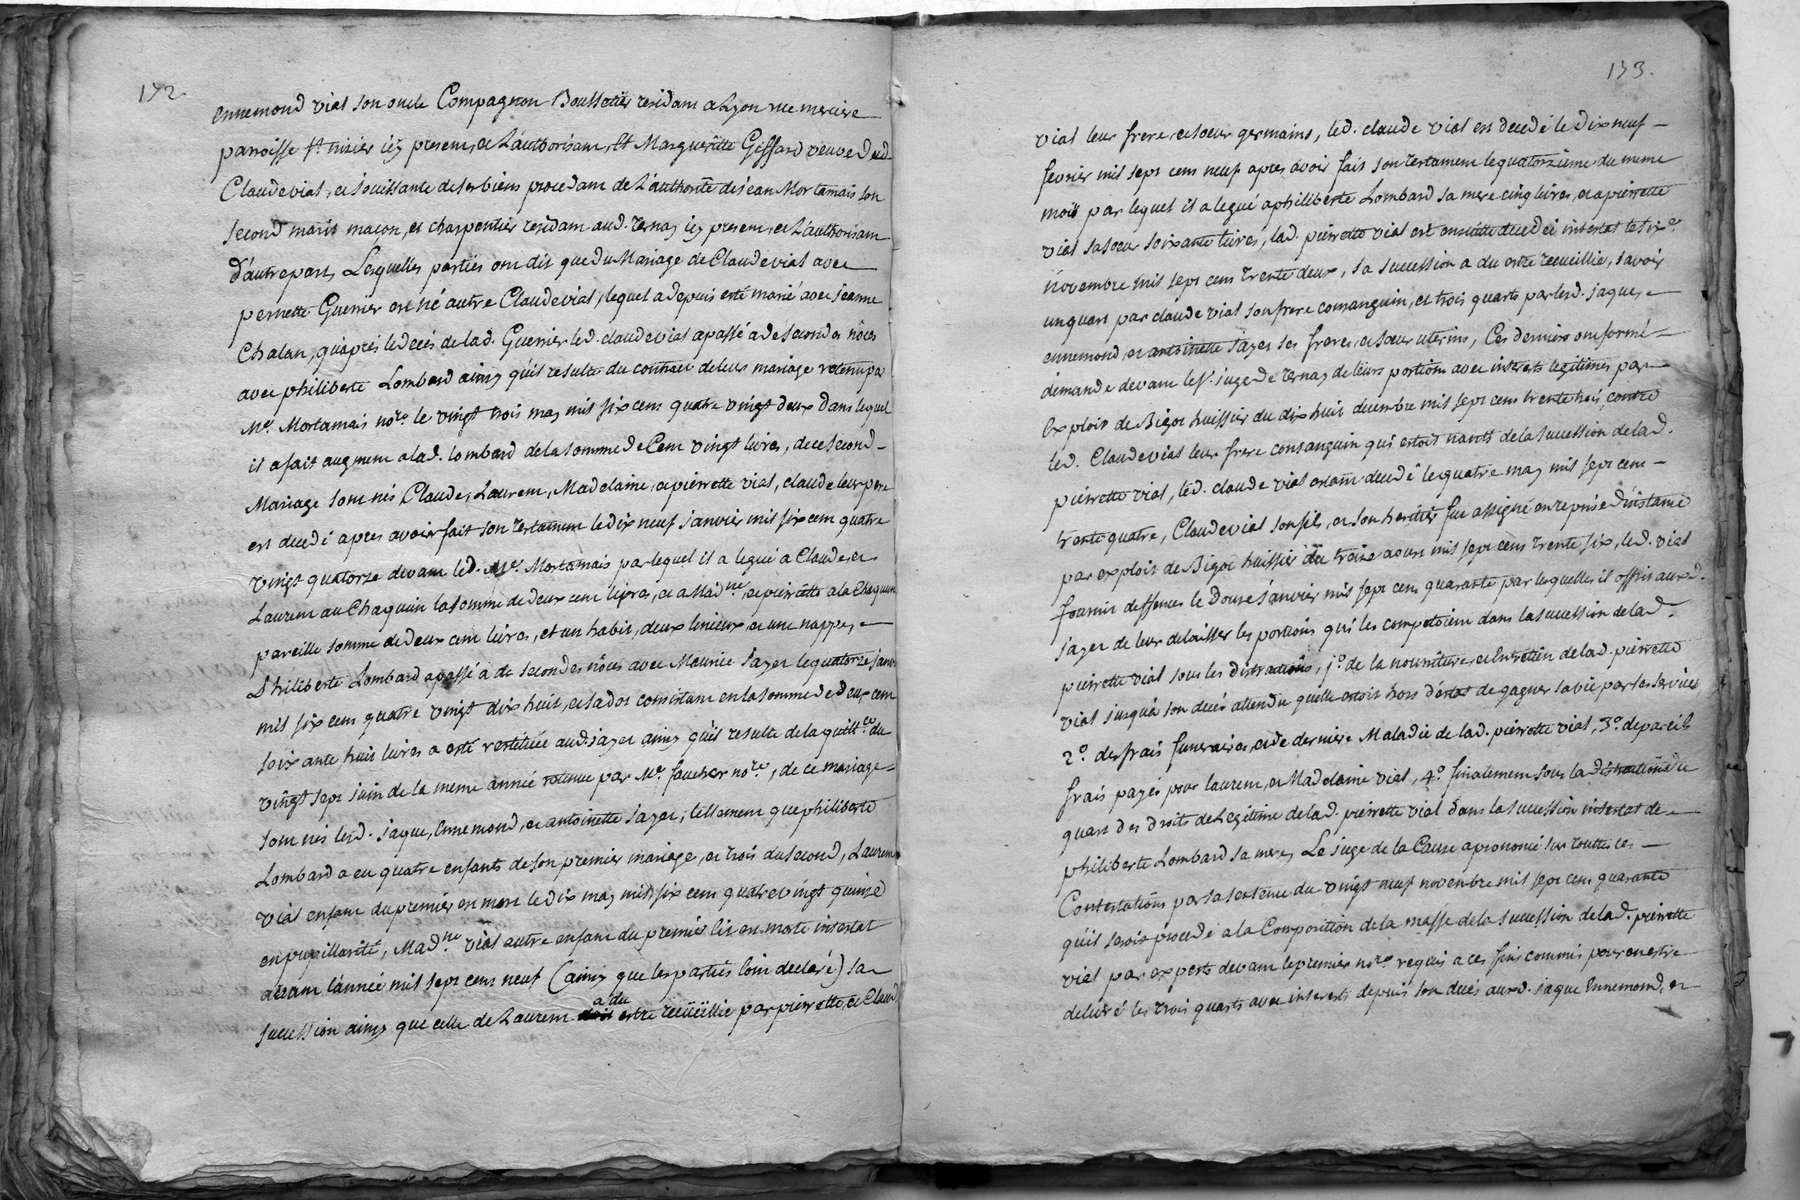 172.
Ennemond vial son oncle Compagnon Boulletier residam a Lyon rue merciere
parroisse st. nizier icy presem, et L'authorisam, Et Marguerite Geffard veuve dud.
Claude vial, et jouissante de ses biens procedam de L'authorité de jean Mortamais son
second marit macon, et charpentier residam aud. ternay icy presem, et L'authorisam
d'autre part, Lesquelles parties om dit que du Mariage de Claude vial avec
pernette Guerrier est né autre Claude vial, lequel a depuis esté marié avec jeanne
Chalan, qu'apres le deces de lad. Guerrier led. claude vial a passé a de secondes nôces
avec philiberte Lombard ainsy qu'il resulte du contract de leur mariage retenu par
Me. Mortamais nore. le vingt trois may mil six cens quatre vingt deux dans lequel
il a fait augmem a lad. lombard de la somme de Cem vingt livres, de ce second
Mariage som nés Claude, Laurem, Madelaine, et pierrette vial, claude leur pere
est decedé apres avoir fait son testamem le dix neuf janvier mil six cem quatre
vingt quatorze devam led. Me. Mortamais par lequel il a legué a Claude, et
Laurem au Chaquun la somme de deux cem livres, et a Madne. et pierrette a la Chaquune
pareille somme de deux cem livres, et un habit, deux linieux et une nappe,
Philiberte Lombard a passé a de secondes nôces avec Maurice Jayer le quatorze janv.
mil six cens quatre vingt dix huit, et sa dot consistam en la somme de deux cem
soixante huit livres a esté restituée aud. jayer ainsy qu'il resulte de la quittce. du
vingt sept juin de la meme année retenue par Me. faucher nore., de ce mariage
som nés lesd. jaque, Ennemond, et antoinette jayer; tellemem que philiberte
Lombard a eu quatre enfants de son premier mariage, et trois du second, Laurem
vial enfam du premier en mort le dix may mil six cens quatre vingt quinze
en pupillarité, Madne. vial autre enfam du premier lit en morte intestat
avam l'année mil sept cens neuf (ainsy que les parties l'om declaré) sa
succession ainsy que celle de Laurem a du estre recüeillie par pierrette, et Claude
173.
vial leur frere, et soeur germains, led. claude vial en decedé le dix neuf
fevrier mil sept cem neuf apres avoir fait son testamem le quatorzieme du meme
mois par lequel il a legué a philiberte Lombard sa mere cinq livres, et a pierrette
vial sa soeur soixante livres, lad. pierrette vial est ensuitte decedée intestat le sixe.
novembre mil sept cem trente deux, sa succession a du estre recueillie, savoir
un quart par claude vial son frere consanguin, et trois quarts par lesd. jaque,
ennemond, et antoinette jayer ses freres, et soeur uterins, Ces derniers om formé
demande devam le sr. juge de ternay de leurs portions avec interets legitimes par
Exploit de Bigot huissier du dix huit decembre mil sept cens trente trois, contre
led. Claude vial leur frere consanguin qui estoit nanti de la succession de lad.
pierrette vial, led. claude vial etam decedé le quatre may mil sept cem
trente quatre, Claude vial son fils, et son heritier fut assigné en reprise d'instance
par exploit de Bigot huissier du traize aoust mil sept cens trente six, led. vial
fournit deffences le Douze janvier mil sept cens quarante par lesquelles il offrit auxd.
jayer de leur delaisser les portions qui les competoiem dans la succession de lad.
pierrette vial sous les distractions, 1o. de la nourriture, et Entretien de lad. pierrette
vial jusqu'a son decés attendu qu'elle estoit hors d'estat de gagner sa vie par ses services
2o. des frais funeraires, et de derniere Maladie de lad. pierrette vial, 3o. de pareils
frais payés pour laurem, et Madelaine vial, 4o. finalement sous la distraction du
quart des droits de Legitime de lad. pierrette vial dans la succession intestat de
philiberte Lombard sa mere, Le juge de la Cause a prononcé sur touttes ces
Contestations par sa sentence du vingt neuf novembre mil sept cens quarante
qu'il seroit procedé a la Composition de la masse de la succession de lad. pierrette
vial par experts devam le premier nore. requis a ces fins commis pour en estre
delivré les trois quarts avec interests depuis son decés auxd. jaque Ennemond, et